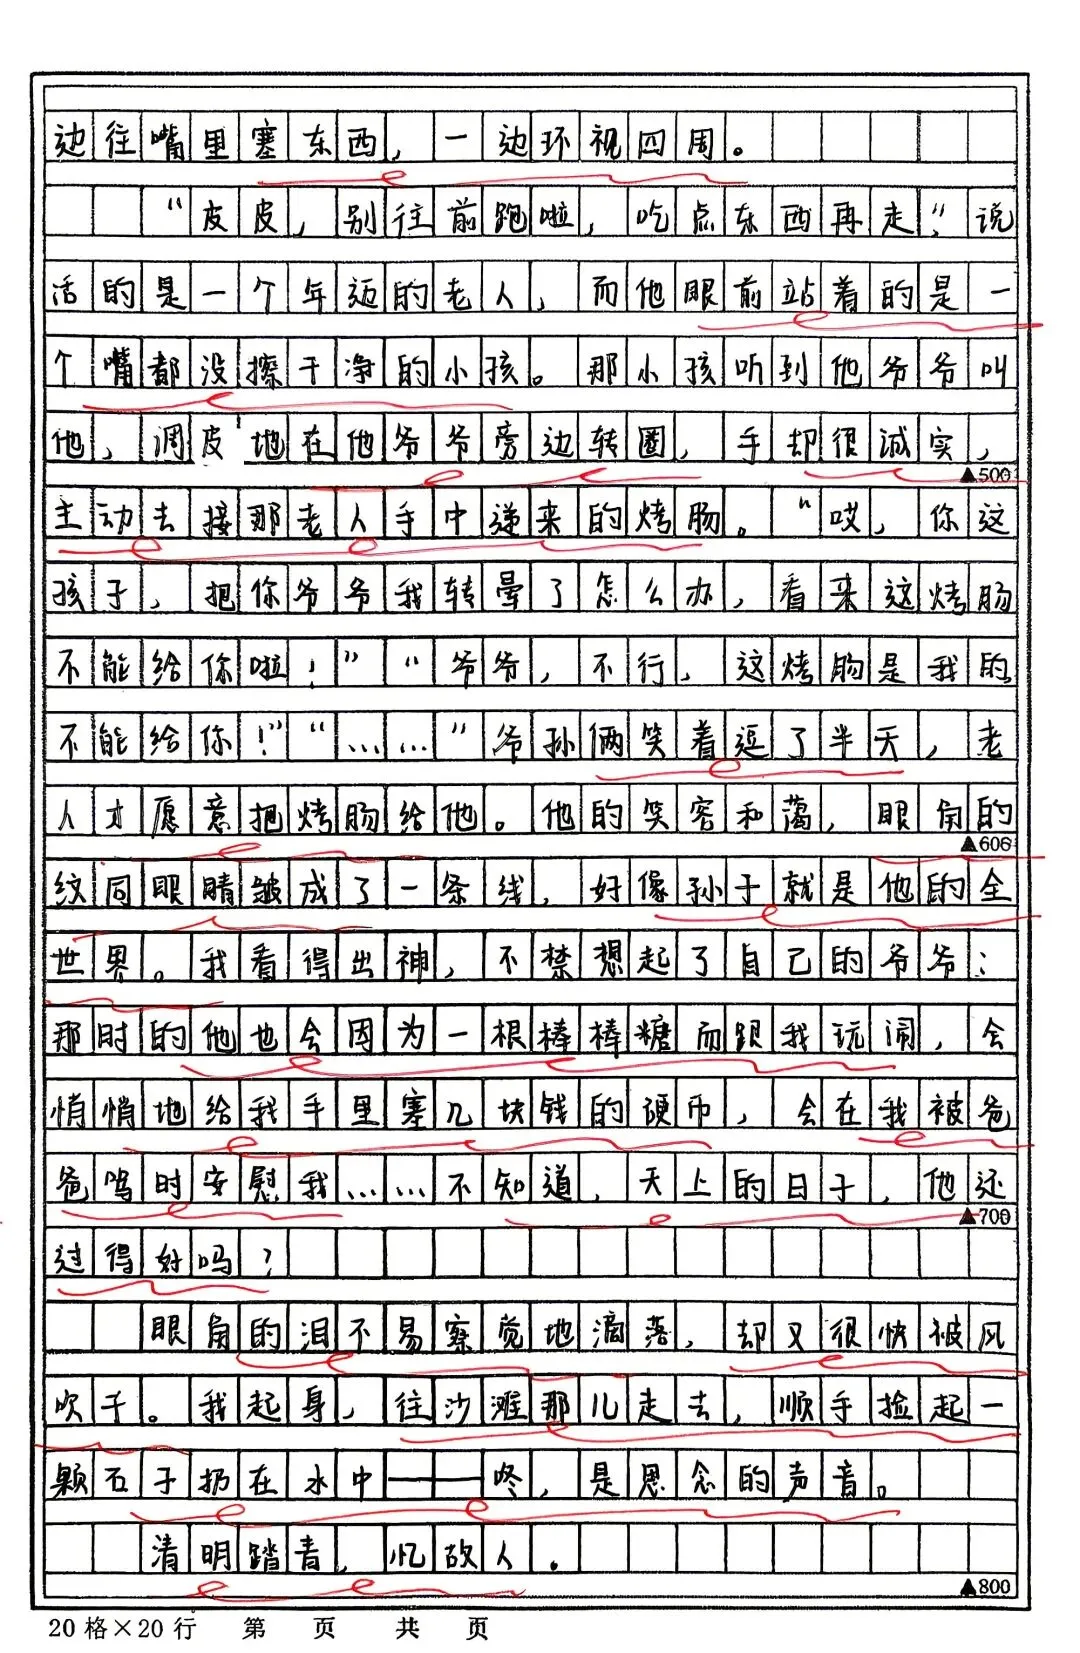 边往嘴里塞东西，一边环视四周。
“皮皮，别往前跑啦，吃点东西再走”，说
活的是一个年迈的老人，而他眼前站着的是一
个嘴都没擦干净的小孩。那小孩听到他爷爷叫
他，调皮地在他爷爷旁边转圈，手却很诚实，
▲500
主动去接那老人手中递来的烤肠。“哎，你这
孩子，把你爷爷我转晕了怎么办，看来这烤肠
不能给你啦！”“爷爷，不行，这烤肠是我的
不能给你！”“……”爷孙俩笑着逗了半天，老
人才愿意把烤肠给他。他的笑容和蔼，眼角的
▲606
纹同眼睛皱成了一条线，好像孙子就是他的全
世界。我看得出神，不禁想起了自己的爷爷：
那时的他也会因为一根棒棒糖而跟我玩闹，会
悄悄地给我手里塞几块钱的硬币，会在我被爸
爸骂时安慰我……不知道，天上的日子，他还
▲700
过得好吗？
眼角的泪不易察觉地滴落，却又很快被风
吹干。我起身，往沙滩那儿走去，顺手捡起一
颗石子扔在水中——咚，是思念的声音。
清明踏青，忆故人。
▲800
20格×20行 第 页 共 页